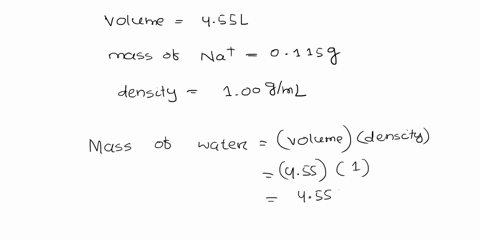 Volume = 4.55L
mass of Na⁺ = 0.115g
density = 1.00 g/mL
Mass of water = (volume) (density)
= (4.55) (1)
= 4.55